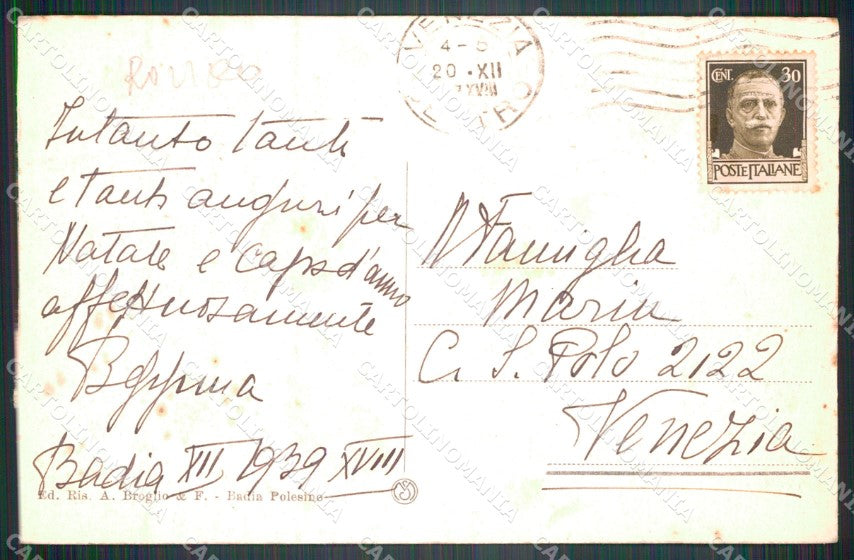 VENEZIA
20 . XII
XVIII
CENT. 30
POSTE ITALIANE
Intanto tanti
e tanti auguri per
Natale e Capo d'anno
affettuosamente
Beppina
Badia XII 1939 XVIII
Ed. Ris. A. Broglio & F. - Badia Polesine
Famiglia
Marin
C. S. Polo 2122
Venezia
CARTOLINOMANIA